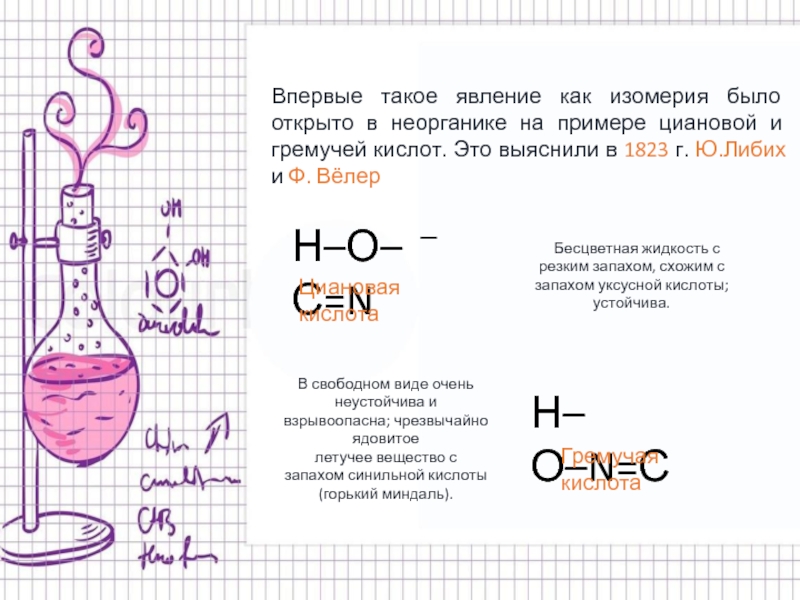 Впервые такое явление как изомерия было
открыто в неорганике на примере циановой и
гремучей кислот. Это выяснили в 1823 г. Ю.Либих
и Ф. Вёлер
H–O– –
C=N
Циановая
кислота
Бесцветная жидкость с
резким запахом, схожим с
запахом уксусной кислоты;
устойчива.
В свободном виде очень
неустойчива и
взрывоопасна; чрезвычайно
ядовитое
летучее вещество с
запахом синильной кислоты
(горький миндаль).
H–
O–N=C
Гремучая
кислота
OH
OH